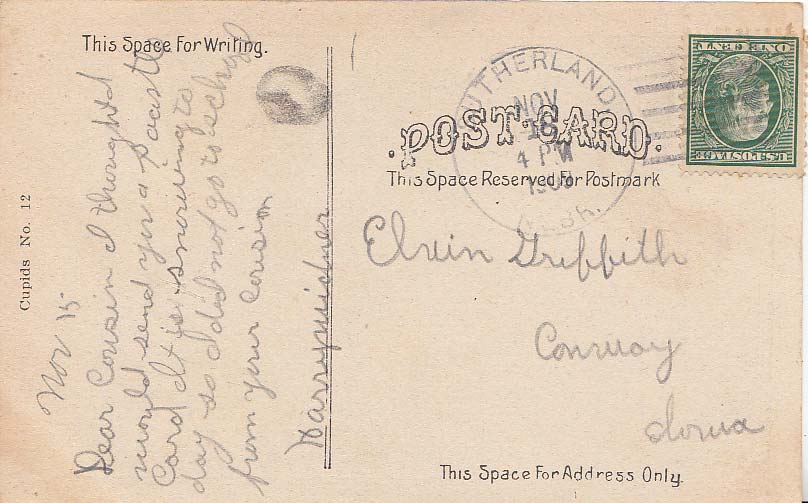 This Space For Writing.
Nov 15
Dear Cousin I thought I
would send you a poastle
Card It is snowing to
day so I did not go to school
from your cousion
Cupids No. 12
SUTHERLAND
NOV
16
4 PM
NEBR.
ONE CENT
U.S. POSTAGE
POST-CARD.
This Space Reserved For Postmark
Elvin Griffith
Conway
Iowa
This Space For Address Only.